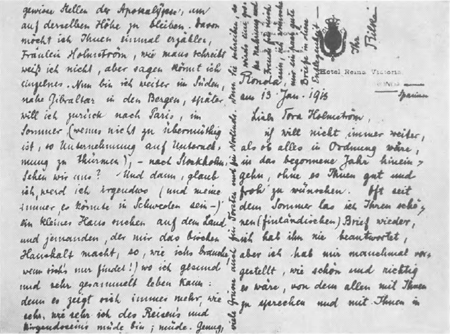 Hotel Reina Victoria
Ronda
Spanien
am 13. Jan. 1913
Liebe Tora Holmström,
es will nicht immer weiter,
als ob alles in Ordnung wäre,
in das begonnene Jahr hinein-
gehn, ohne es Ihnen gut und
froh zu wünschen. Oft seit
dem Sommer las ich Ihren schö-
nen (finländischen) Brief wieder,
ich hab ihn nie beantwortet,
aber ich hab mir manchmal vor-
gestellt, wie schön und richtig
es wäre, von dem allen mit Ihnen
zu sprechen und mit Ihnen in
gewisse Stellen der Apokalypse, um
auf derselben Höhe zu bleiben. Davon
möcht ich Ihnen einmal erzählen,
Fräulein Holmström, wie mans schreibt
weiß ich nicht, aber sagen könnt ich
einzelnes. Nun bin ich weiter im Süden,
nahe Gibraltar in den Bergen, später
will ich zurück nach Paris, im
Sommer (wenns nicht zu übermüthig
ist, so Unternehmung auf Unterneh-
mung zu thürmen), – nach Stockholm.
Sehen wir uns? Und dann, glaub
ich, werd ich irgendwo (und meine
immer es könnte in Schweden sein –)
ein kleines Haus suchen auf dem Land
und jemanden, der mir das bischen
Haushalt macht, so, wie ichs brauche
(wenn sichs nur findet!) wo ich gesund
und sehr gesammelt leben kann:
denn es zeigt sich immer mehr, wie
sehr, wie sehr ich des Reisens und
Nirgendsseins müde bin; müde. Genug,
Ihr
Rilke